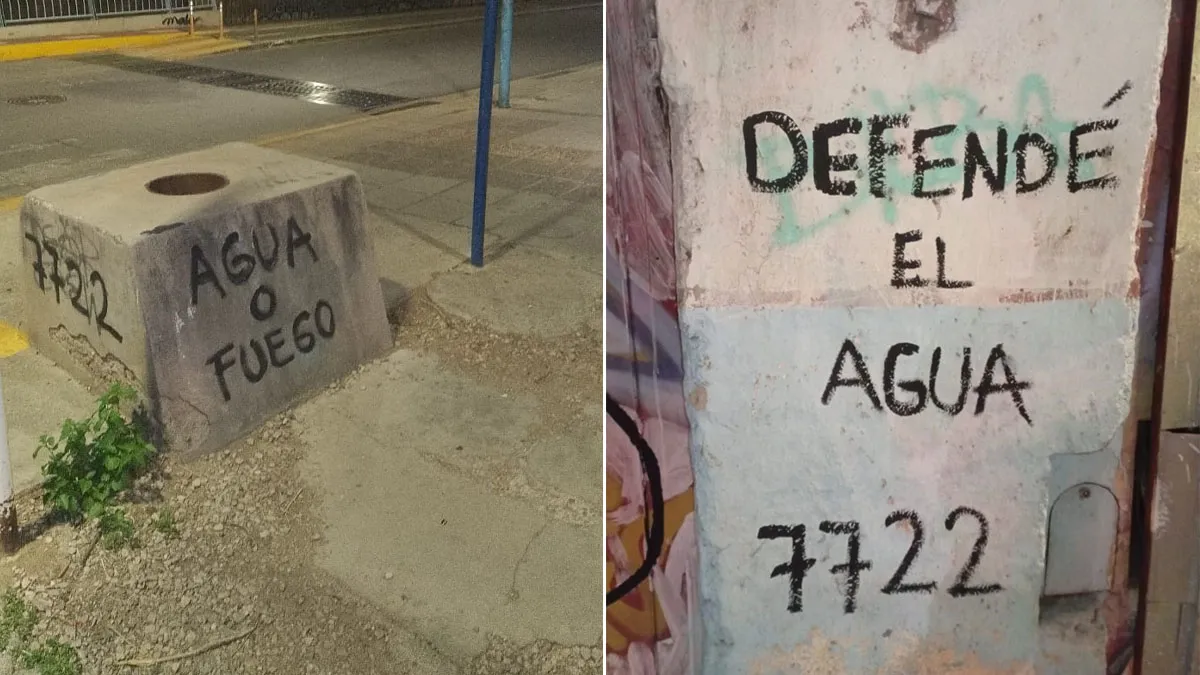 7722
AGUA
O
FUEGO
DEFENDÉ
EL
AGUA
7722